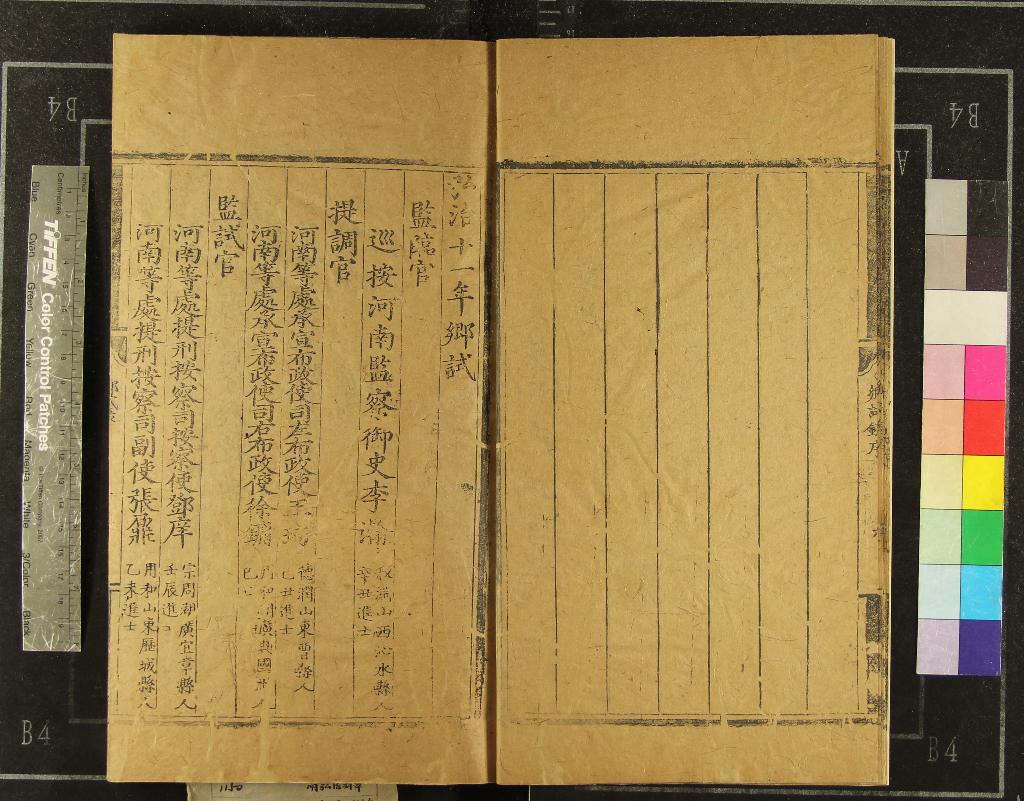 鄉試錄序
弘治十一年鄉試
監臨官
巡按河南監察御史李瀚
叔淵山西沁水縣人
辛丑進士
提調官
河南等處承宣布政使司左布政使王
德潤山東曹縣人
己丑進士
河南等處承宣布政使司右布政使徐
湖廣興國州人
監試官
河南等處提刑按察司按察使鄧庠
宗周湖廣宜章縣人
壬辰進士
河南等處提刑按察司副使張鼐
用和山東歷城縣人
乙未進士
B4
B4
B4
B4
A
TIFFEN Color Control Patches
Centimetres
Blue
Cyan
Green
Yellow
Red
Magenta
White
3/Color
Black